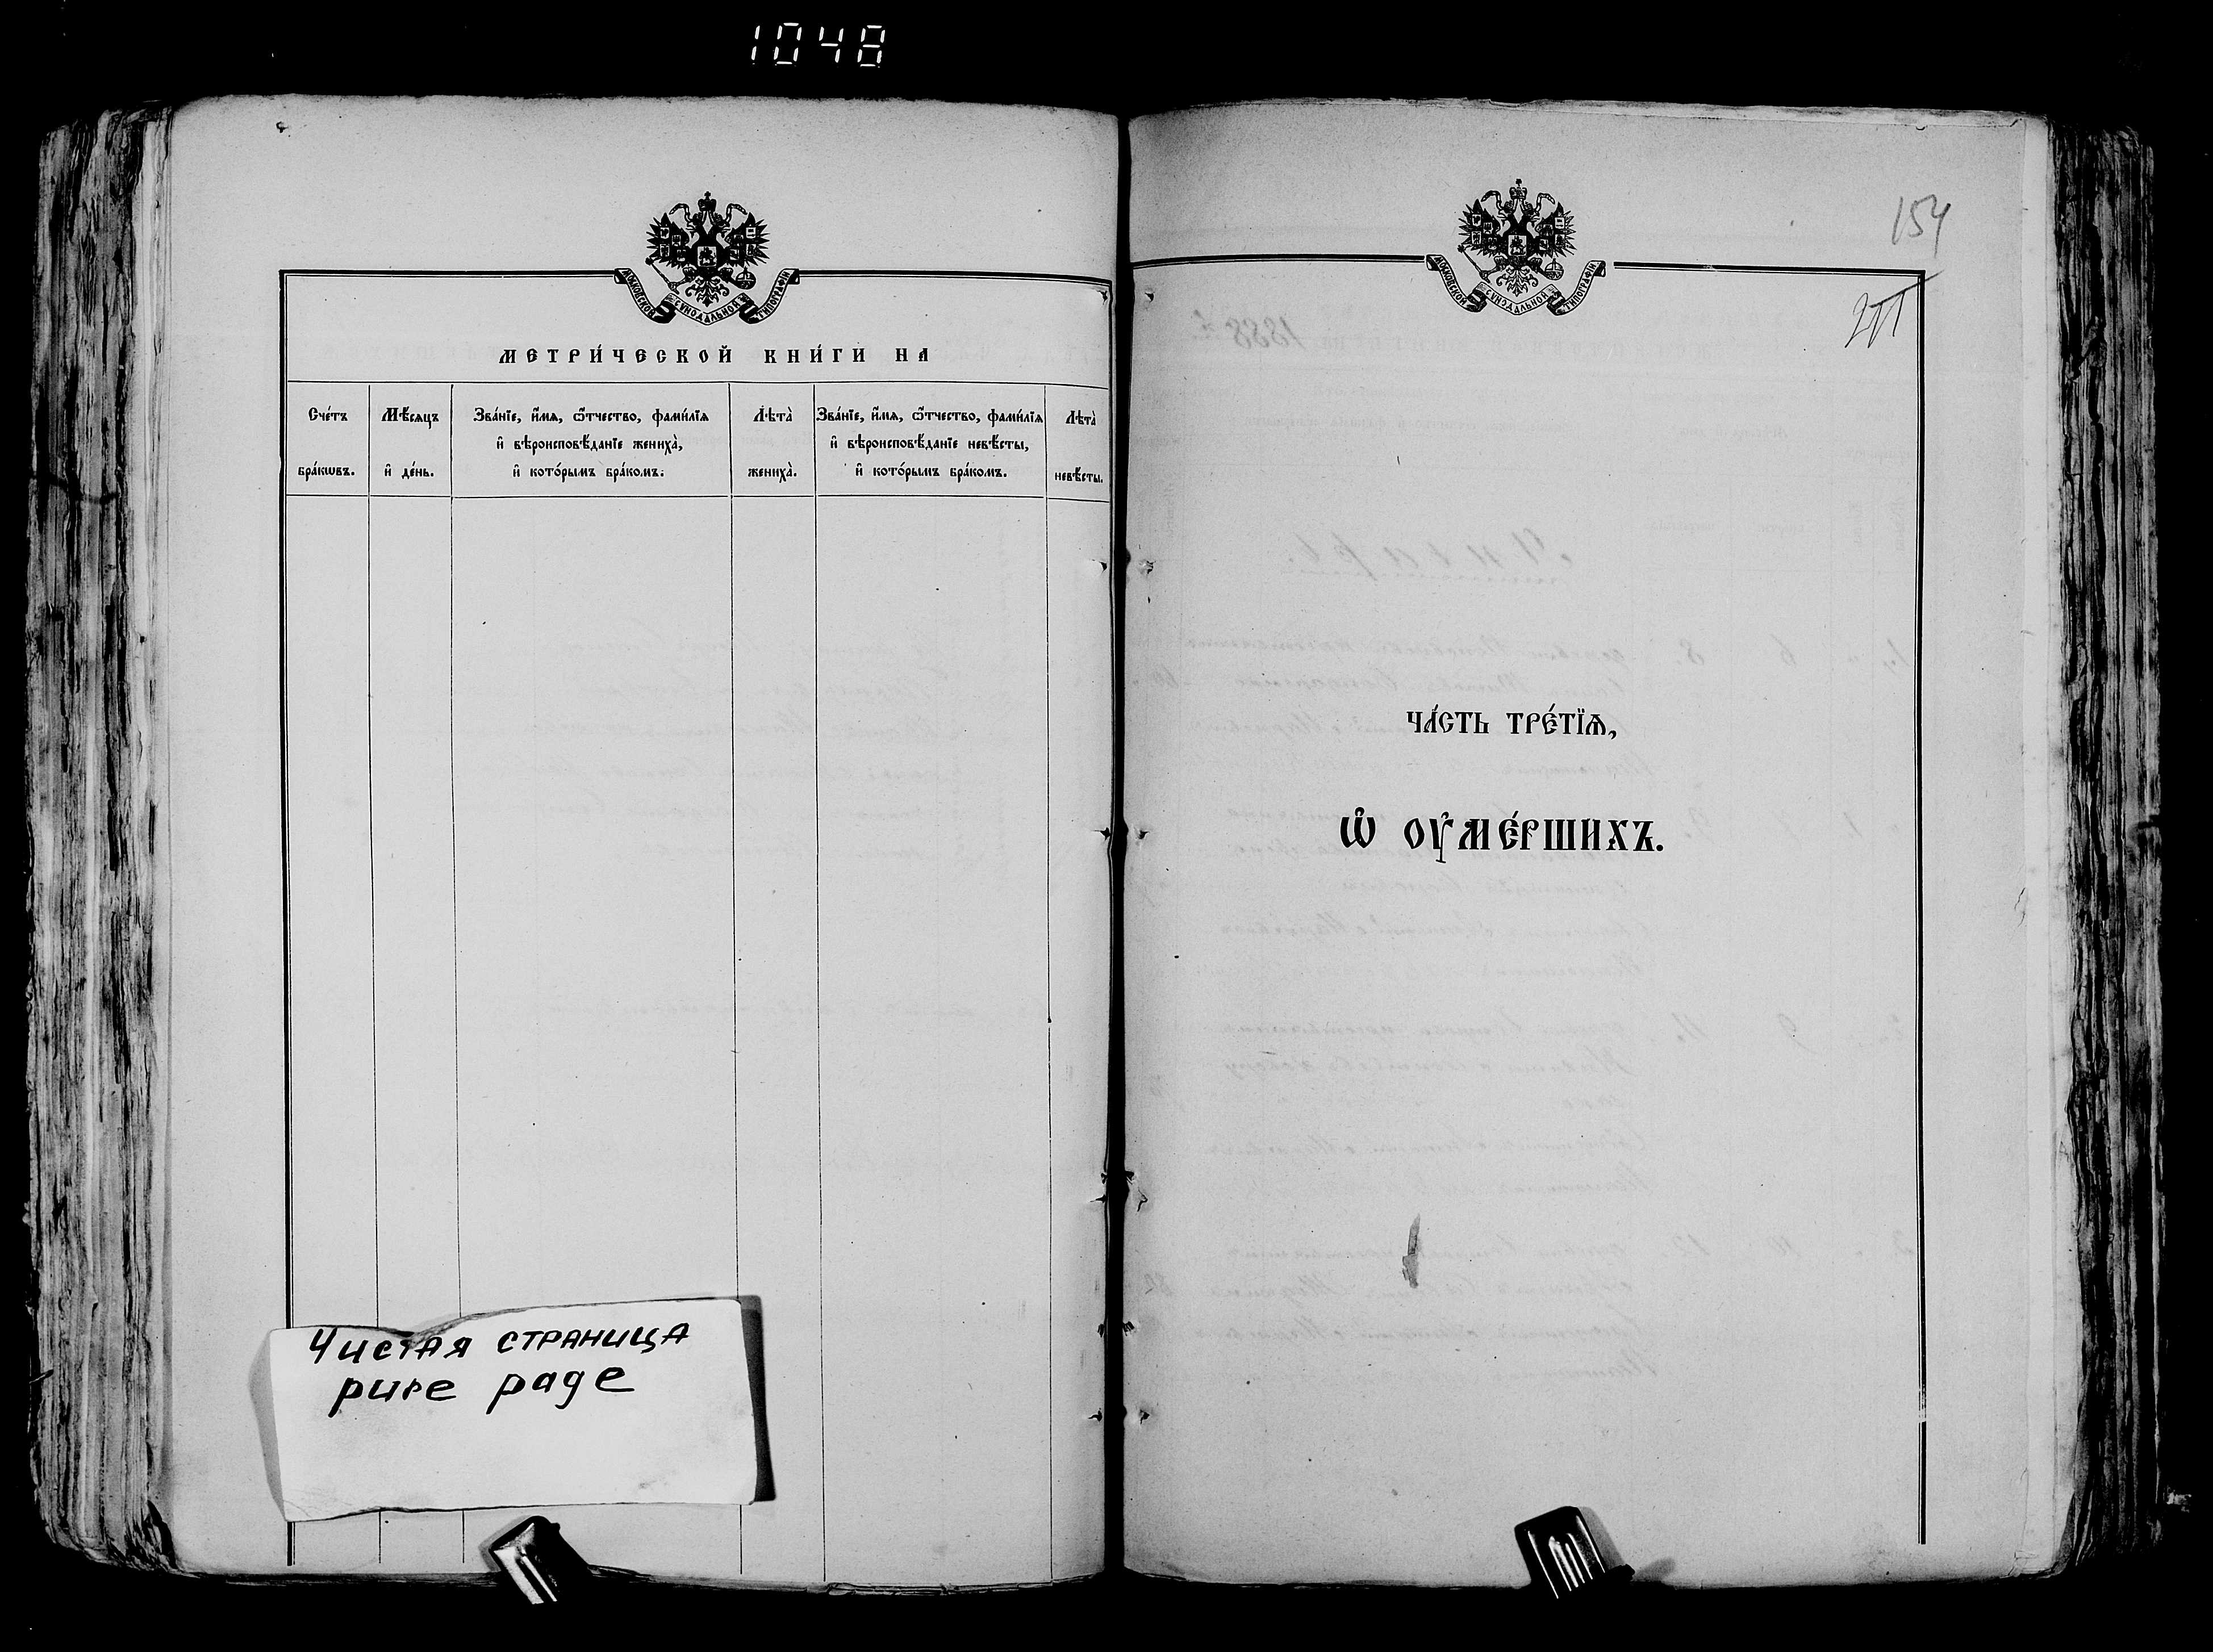 1048
МОСКОВСКОЙ СѴНОДАЛЬНОЙ ТИПОГРАФІИ
МЕТРИ́ЧЕСКОЙ КНИ́ГИ НА
Сче́тъ
бра́кѡвъ.
Мѣ́сяцъ
и҆ де́нь.
Зва́нїе, и҆́мѧ, ѻ҆́тчество, фами́лїѧ
и҆ вѣроисповѣ́данїе жениха̀,
и҆ кото́рымъ бра́комъ.
Лѣта̀
жениха̀.
Зва́нїе, и҆́мѧ, ѻ҆́тчество, фами́лїѧ
и҆ вѣроисповѣ́данїе невѣ́сты,
и҆ кото́рымъ бра́комъ.
Лѣта̀
невѣ́сты.
Чистая страница
pure page
МОСКОВСКОЙ СѴНОДАЛЬНОЙ ТИПОГРАФІИ
154
ЧА́СТЬ ТРЕ́ТЇѦ,
Ѡ҆ ОУ҆МЕ́РШИХЪ.